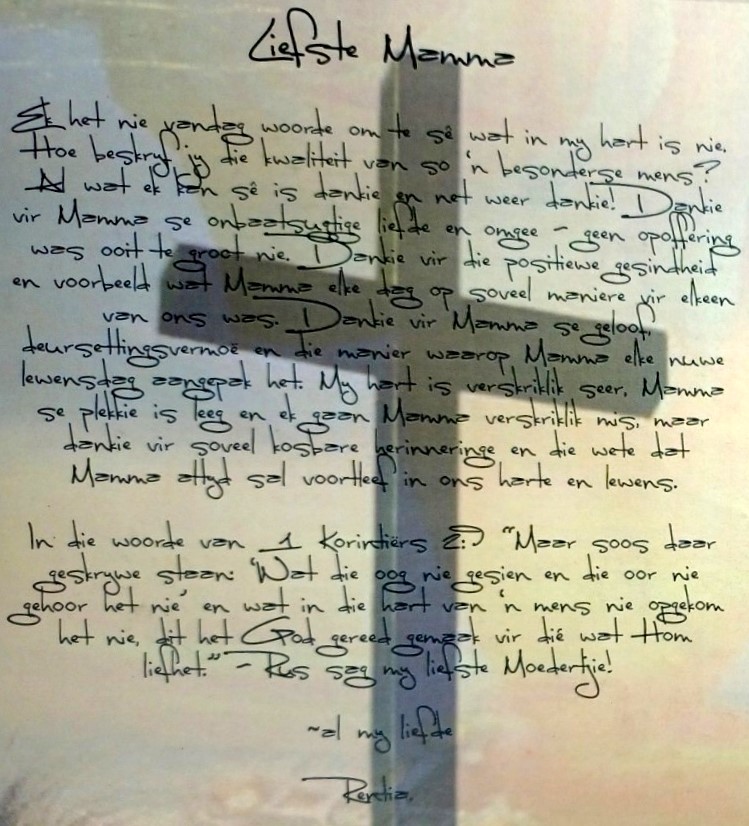 Liefste Mamma
Ek het nie vandag woorde om te sê wat in my hart is nie.
Hoe beskryf jy die kwaliteit van so 'n besonderse mens?
Al wat ek kan sê is dankie en net weer dankie! Dankie
vir Mamma se onbaatsugtige liefde en omgee - geen opoffering
was ooit te groot nie. Dankie vir die positiewe gesindheid
en voorbeeld wat Mamma elke dag op soveel maniere vir elkeen
van ons was. Dankie vir Mamma se geloof,
deursettingsvermoë en die manier waarop Mamma elke nuwe
lewensdag aangepak het. My hart is verskriklik seer, Mamma
se plekkie is leeg en ek gaan Mamma verskriklik mis, maar
dankie vir soveel kosbare herinneringe en die wete dat
Mamma altyd sal voortleef in ons harte en lewens.
In die woorde van 1 Korintiërs 2:9 "Maar soos daar
geskrywe staan: 'Wat die oog nie gesien en die oor nie
gehoor het nie' en wat in die hart van 'n mens nie opgekom
het nie, dit het God gereed gemaak vir dié wat Hom
liefhet." - Rus sag my liefste Moedertjie!
~al my liefde
Rentia.